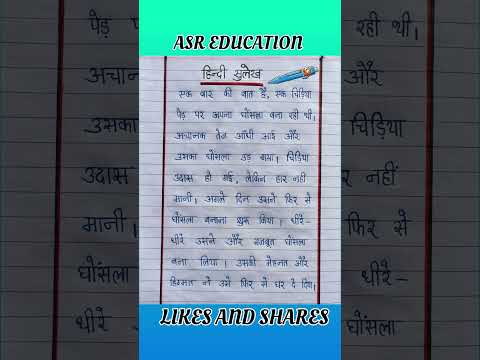 ASR EDUCATION
हिन्दी सुलेख
एक बार की बात है, एक चिड़िया
पेड़ पर अपना घोंसला बना रही थी।
अचानक तेज आंधी आई और
उसका घोंसला उड़ गया। चिड़िया
उदास हो गई, लेकिन हार नहीं
मानी। अगले दिन उसने फिर से
घोंसला बनाना शुरू किया। धीरे-
धीरे उसने और मजबूत घोंसला
बना लिया। उसकी मेहनत और
हिम्मत ने उसे फिर से घर दे दिया।
LIKES AND SHARES
पेड़
अचानक
उसका
उदास
मानी।
घोंसला
धीरे
रही थी।
और
चिड़िया
नहीं
फिर से
धीरे-